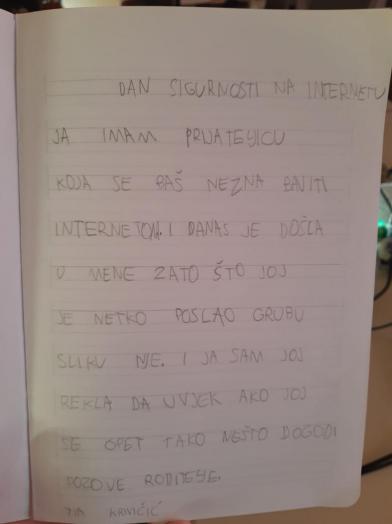 DAN SIGURNOSTI NA INTERNETU
JA IMAM PRIJATEYICU
KOJA SE BAŠ NEZNA BAVITI
INTERNETOM. I DANAS JE DOŠLA
U MENE ZATO ŠTO JOJ
JE NETKO POSLAO GRUBU
SLIKU NJE. I JA SAM JOJ
REKLA DA UVJEK AKO JOJ
SE OPET TAKO NEŠTO DOGODI
POZOVE RODITEYE.
TIA KRIVIČIĆ